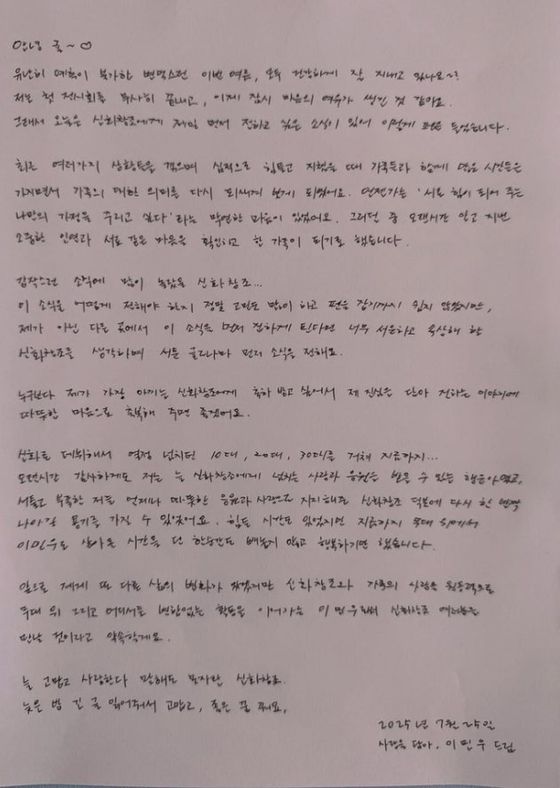 안녕 귤~♡
유난히 예측이 불가한 변덕스런 이번 여름, 모두 건강하게 잘 지내고 있나요~?
저는 첫 전시회를 무사히 끝내고, 이제 잠시 마음의 여유가 생긴 것 같아요.
그래서 오늘은 신화창조에게 제일 먼저 전하고 싶은 소식이 있어 이렇게 펜을 들었습니다.
최근 여러가지 상황들을 겪으며 심적으로 힘들고 지쳤을 때 가족들과 함께 많은 시간들을
가지면서 가족의 대한 의미를 다시 되새기게 되었어요. 언젠가는 '서로 힘이 되어 주는
나만의 가정을 꾸리고 싶다'라는 막연한 마음이 있었어요. 그러던 중 오랜시간 알고 지낸
소중한 인연과 서로 같은 마음을 확인하고 한 가족이 되기로 했습니다.
갑작스런 소식에 많이 놀랐을 신화창조...
이 소식을 어떻게 전해야 하지 정말 고민도 많이 하고 펜을 잡기까지 쉽지 않았지만,
제가 아닌 다른 곳에서 이 소식을 먼저 접하게 된다면 너무 서운하고 속상해 할
신화창조를 생각하며 서툰 글로나마 먼저 소식을 전해요.
누구보다 제가 가장 아끼는 신화창조에게 축하 받고 싶어서 제 진심을 담아 전하는 이야기에
따뜻한 마음으로 축복해 주면 좋겠어요.
신화로 데뷔해서 열정 넘치던 10대, 20대, 30대를 거쳐 지금까지...
오랜시간 감사하게도 저는 늘 신화창조에게 넘치는 사랑과 응원을 받을 수 있는 행운아였고,
서툴고 부족한 저를 언제나 따뜻한 응원과 사랑으로 지지해준 신화창조 덕분에 다시 한 발짝
나아갈 용기를 가질 수 있었어요. 힘든 시간도 있었지만 지금까지 무대 위에서
이민우로 살아온 시간을 단 한순간도 빼놓지 않고 행복하기만 했습니다.
앞으로 제게 또 다른 삶의 변화가 있겠지만 신화창조와 가족의 사랑을 원동력으로
무대 위 그리고 어디서든 변함없는 활동을 이어가는 이민우로써 신화창조 여러분을
만날 것이라고 약속할게요.
늘 고맙고 사랑한다 말해도 모자란 신화창조.
늦은 밤 긴 글 읽어줘서 고맙고, 좋은 꿈 꿔요.
2025년 7월 25일
사랑을 담아, 이민우 드림